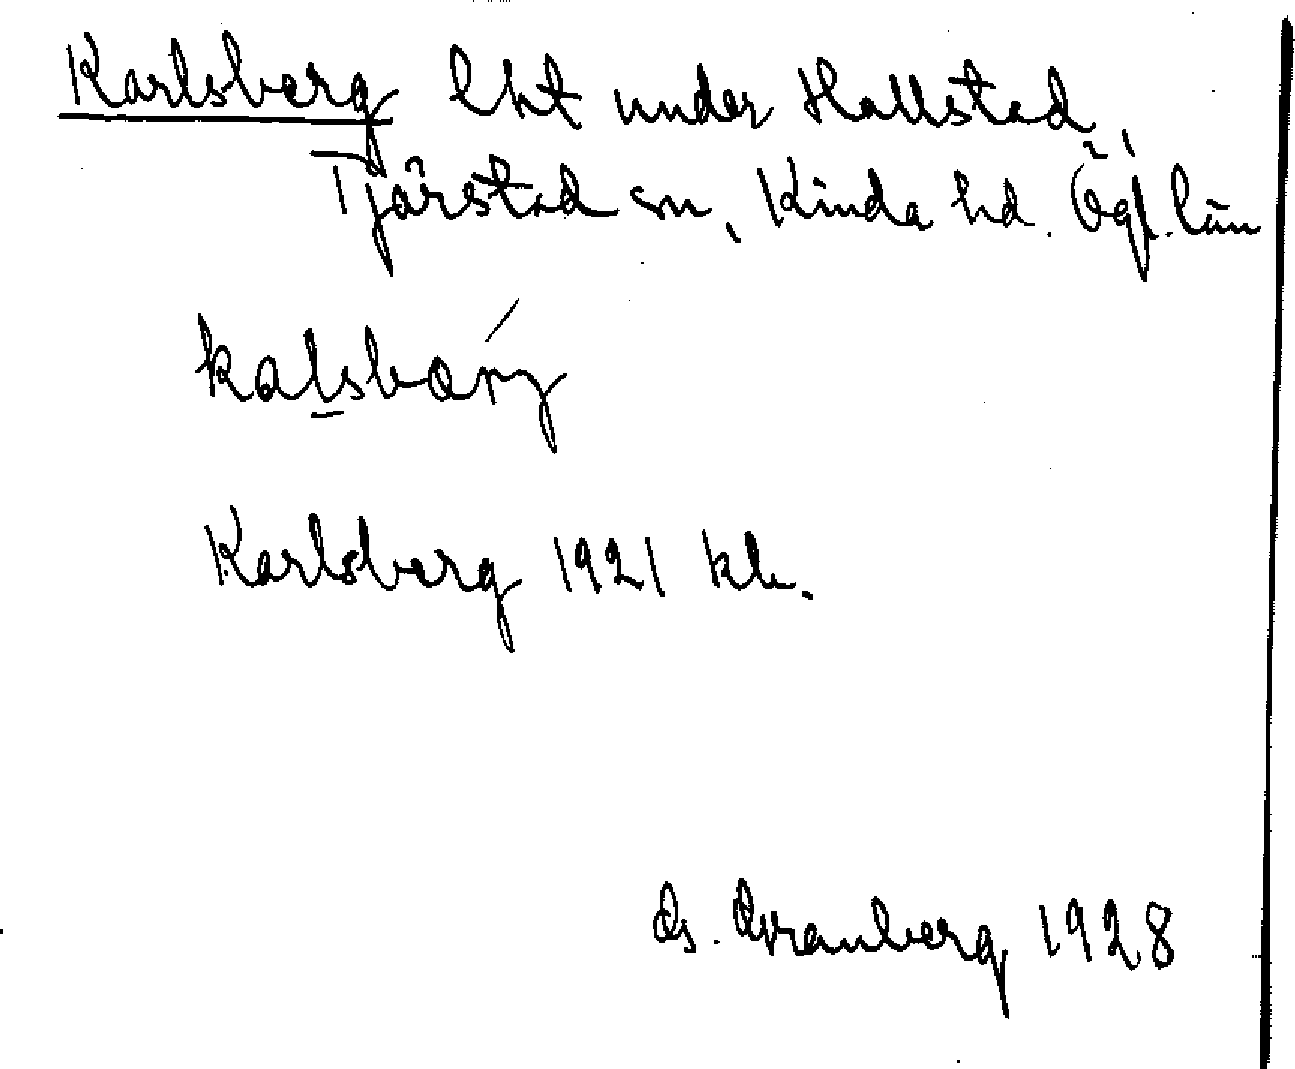 Karlsberg lht under Hallstad,
Tjärstad sn, Kinda hd. Ögl. län
kalsbärj
Karlsberg 1921 kb.
Granberg 1928